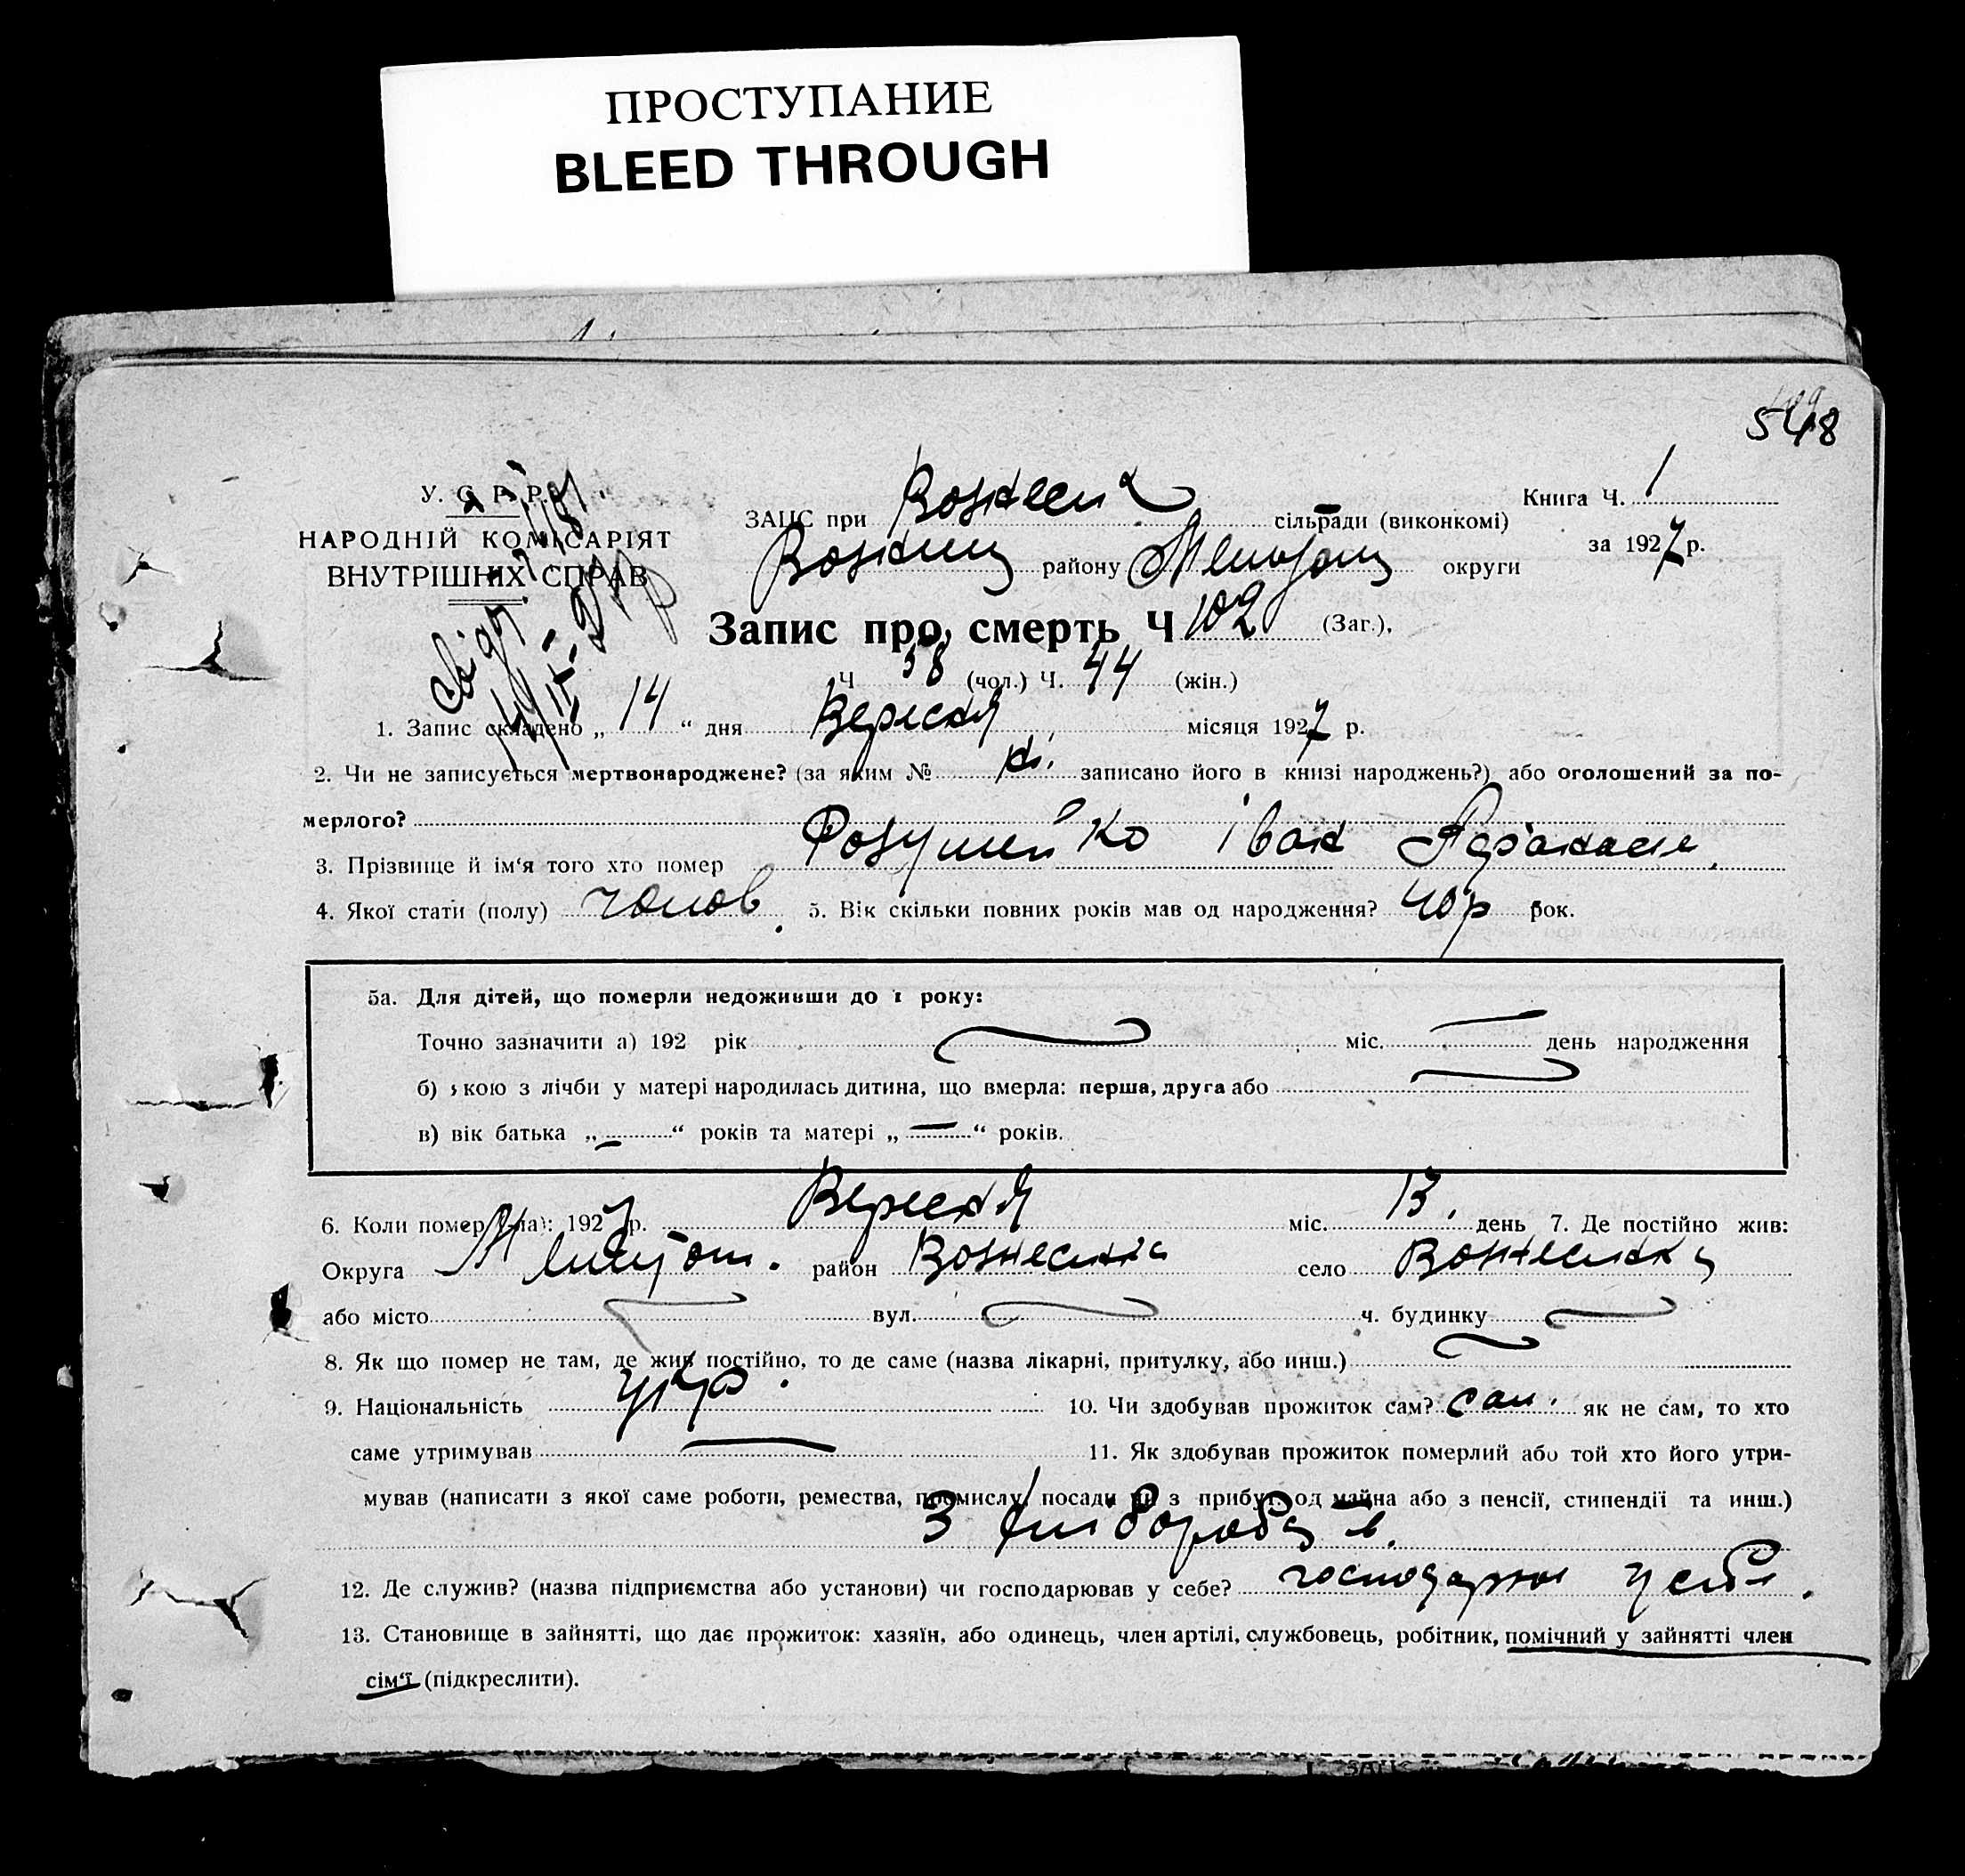 ПРОСТУПАНИЕ
BLEED THROUGH
548
У. С. Р. Р.
НАРОДНІЙ КОМІСАРІЯТ
ВНУТРІШНІХ СПРАВ
ЗАЦС при Вознесен сільради (виконкомі) Книга Ч. 1
району округи за 1927 р.
Запис про смерть Ч 102 (Заг.),
Ч 58 (чол.) Ч. 44 (жін.)
1. Запис складено „ 14 “ дня Вересня місяця 1927 р.
2. Чи не записується мертвонароджене? (за яким № записано його в книзі народжень?) або оголошений за по-
мерлого?
3. Прізвище й ім'я того хто помер Іван
4. Якої стати (полу) чолов. 5. Вік скільки повних років мав од народження? 40 р рок.
5а. Для дітей, що померли недоживши до 1 року:
Точно зазначити а) 192 рік міс. день народження
б) якою з лічби у матері народилась дитина, що вмерла: перша, друга або
в) вік батька „ — “ років та матері „ — “ років.
6. Коли помер (-ла): 1927 р. Вересня міс. 13. день 7. Де постійно жив:
Округа Мелітоп. район Вознесенка село Вознесенка
або місто вул. ч. будинку
8. Як що помер не там, де жив постійно, то де саме (назва лікарні, притулку, або инш.)
9. Національність укр. 10. Чи здобував прожиток сам? сам. як не сам, то хто
саме утримував — 11. Як здобував прожиток померлий або той хто його утри-
мував (написати з якої саме роботи, ремества, промислу, посади чи з прибут. од майна або з пенсії, стипендії та инш.)
З хліборобства.
12. Де служив? (назва підприємства або установи) чи господарював у себе? господарюв у себе.
13. Становище в зайнятті, що дає прожиток: хазяїн, або одинець, член артілі, службовець, робітник, помічний у зайнятті член
сім'ї (підкреслити).